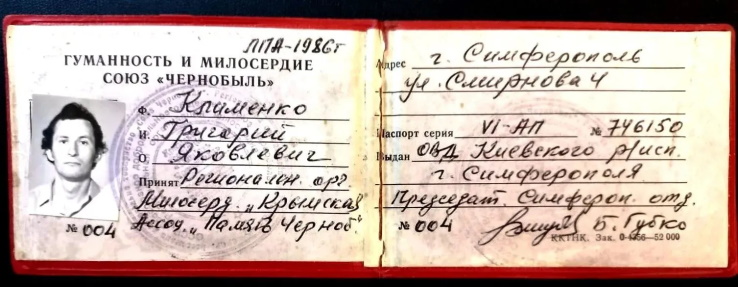 ЛПА-1986г
ГУМАННОСТЬ И МИЛОСЕРДИЕ
СОЮЗ «ЧЕРНОБЫЛЬ»
Ф. Клименко
И. Григорий
О. Яковлевич
Принят Регионален. орг
Милосерд. „Крымская
Ассоц. „Память Черноб."
№ 004
Адрес г. Симферополь
ул. Смирнова 4
Паспорт серия VI-АП № 746150
Выдан ОВД Киевского р/исп.
г. Симферополя
Председат. Симфероп. отд.
№ 004 Б. Губко
ККТНК. Зак. 0-1356—52 000